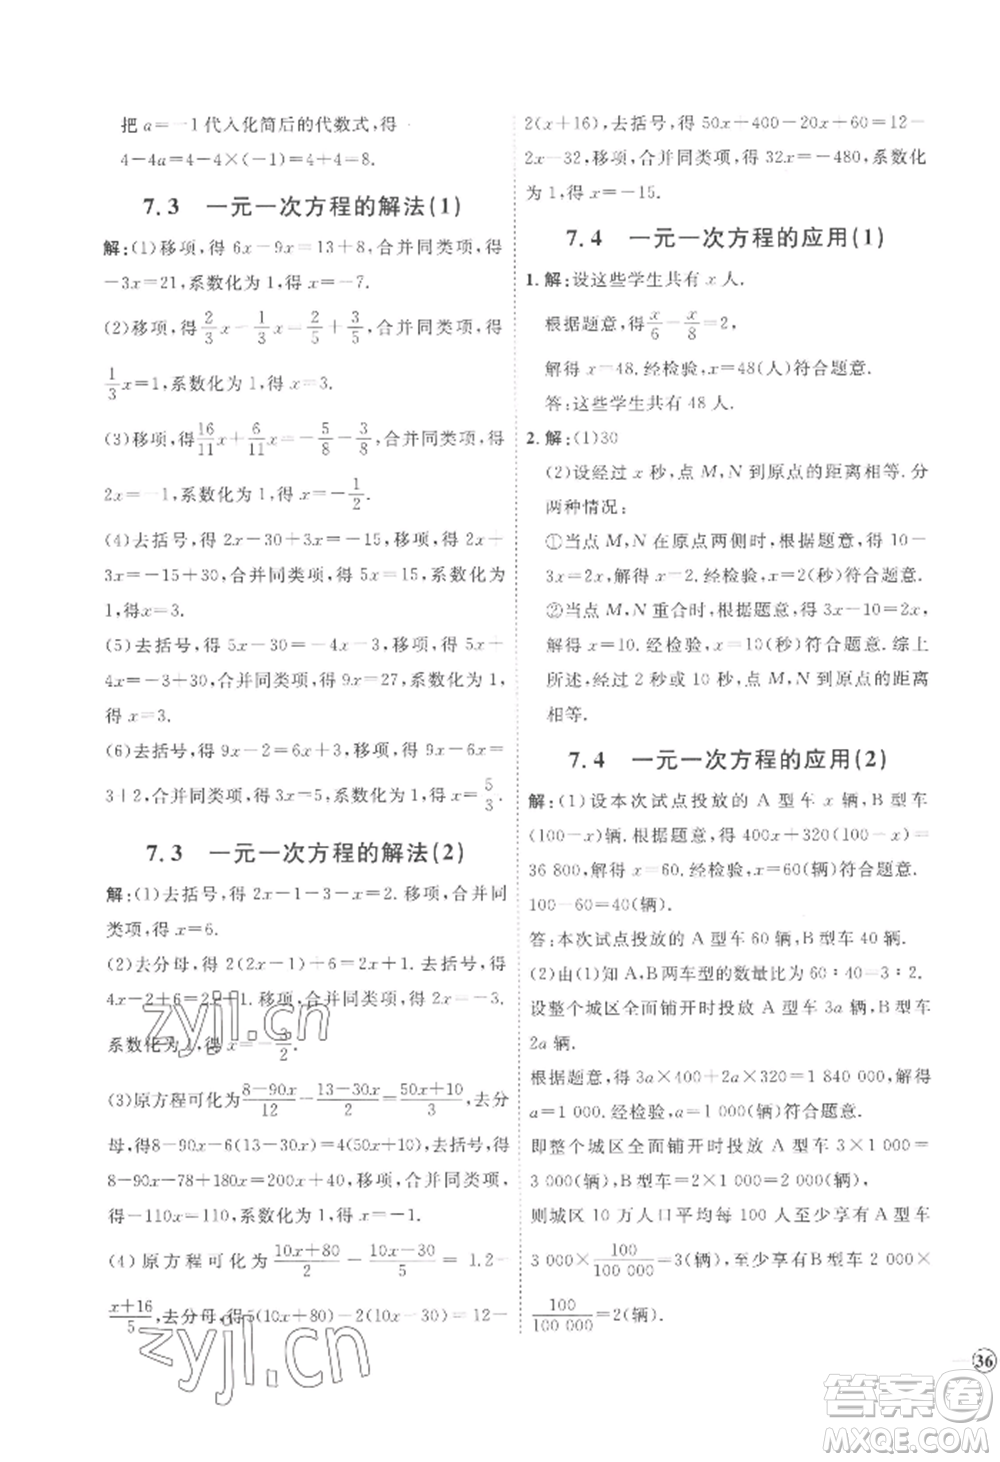 把 a=-1代入化简后的代数式,得
4-4a=4-4×(-1)=4+4=8.
7.3 一元一次方程的解法(1)
解:(1)移项,得 6x-9x=13+8,合并同类项,得
-3x=21,系数化为 1,得 x=-7.
(2)移项,得 2/3x-1/3x=2/5+3/5,合并同类项,得
1/3x=1,系数化为 1,得 x=3.
(3)移项,得16/11x+6/11x=-5/8-3/8,合并同类项,得
2x=-1,系数化为 1,得 x=-1/2.
(4)去括号,得 2x-30+3x=-15,移项,得 2x+3x
=-15+30,合并同类项,得 5x=15,系数化为
1,得 x=3.
(5)去括号,得 5x-30=-4x-3,移项,得 5x+
4x=-3+30,合并同类项,得 9x=27,系数化为 1,
得 x=3.
(6)去括号,得 9x-2=6x+3,移项,得 9x-6x=
3+2,合并同类项,得 3x=5,系数化为 1,得 x=5/3.
7.3 一元一次方程的解法(2)
解:(1)去括号,得 2x-1-3-x=2. 移项,合并同
类项,得 x=6.
(2)去分母,得 2(2x-1)=2x+1-6. 去括号,得
4x-2=2x+1-6. 移项,合并同类项,得 2x=-3.
系数化为 1,得 x=-3/2.
(3)原方程可化为 8-90x/12-13-30x/2=50x+10/3,去分
母,得8-90x-6(13-30x)=4(50x+10),去括号,得
8-90x-78+180x=200x+40,移项,合并同类项,
得-110x=110,系数化为 1,得 x=-1.
(4)原方程可化为 10x+80/2-10x-30/5=1.2-
x+16/5,去分母,得5(10x+80)-2(10x-30)=12-
2(x+16),去括号,得 50x+400-20x+60=12-
2x-32,移项,合并同类项,得 32x=-480,系数化
为 1,得 x=-15.
7.4 一元一次方程的应用(1)
1. 解:设这些学生共有 x 人.
根据题意,得x/6-x/8=2,
解得 x=48. 经检验,x=48(人)符合题意.
答:这些学生共有 48 人.
2. 解:(1)30
(2)设经过 x 秒,点 M,N 到原点的距离相等. 分
两种情况:
①当点 M,N 在原点两侧时,根据题意,得 10-
3x=2x,解得 x=2. 经检验,x=2(秒)符合题意.
②当点 M,N 重合时,根据题意,得 3x-10=2x,
解得 x=10. 经检验,x=10(秒)符合题意. 综上
所述,经过 2 秒或 10 秒,点 M,N 到原点的距离
相等.
7.4 一元一次方程的应用(2)
解:(1)设本次试点投放的 A 型车 x 辆,B 型车
(100-x)辆. 根据题意,得 400x+320(100-x)=
36 800,解得 x=60. 经检验,x=60(辆)符合题意.
100-60=40(辆).
答:本次试点投放的 A 型车 60 辆,B 型车 40 辆.
(2)由(1)知 A,B两车型的数量比为 60:40=3:2.
设整个城区全面铺开时投放 A 型车 3a辆,B 型车
2a 辆.
根据题意,得 3a×400+2a×320=1 840 000,解得
a=1 000. 经检验,a=1 000(辆)符合题意.
即整个城区全面铺开时投放 A 型车 3×1 000=
3 000(辆),B 型车 2×1 000=2 000(辆),
则城区 10 万人口平均每 100 人至少享有A 型车
3 000×100/100 000=3(辆),至少享有B型车 2 000×
100/100 000=2(辆).
36
zyjl.cn
zyjl.cn
答案圈
MXQE.COM